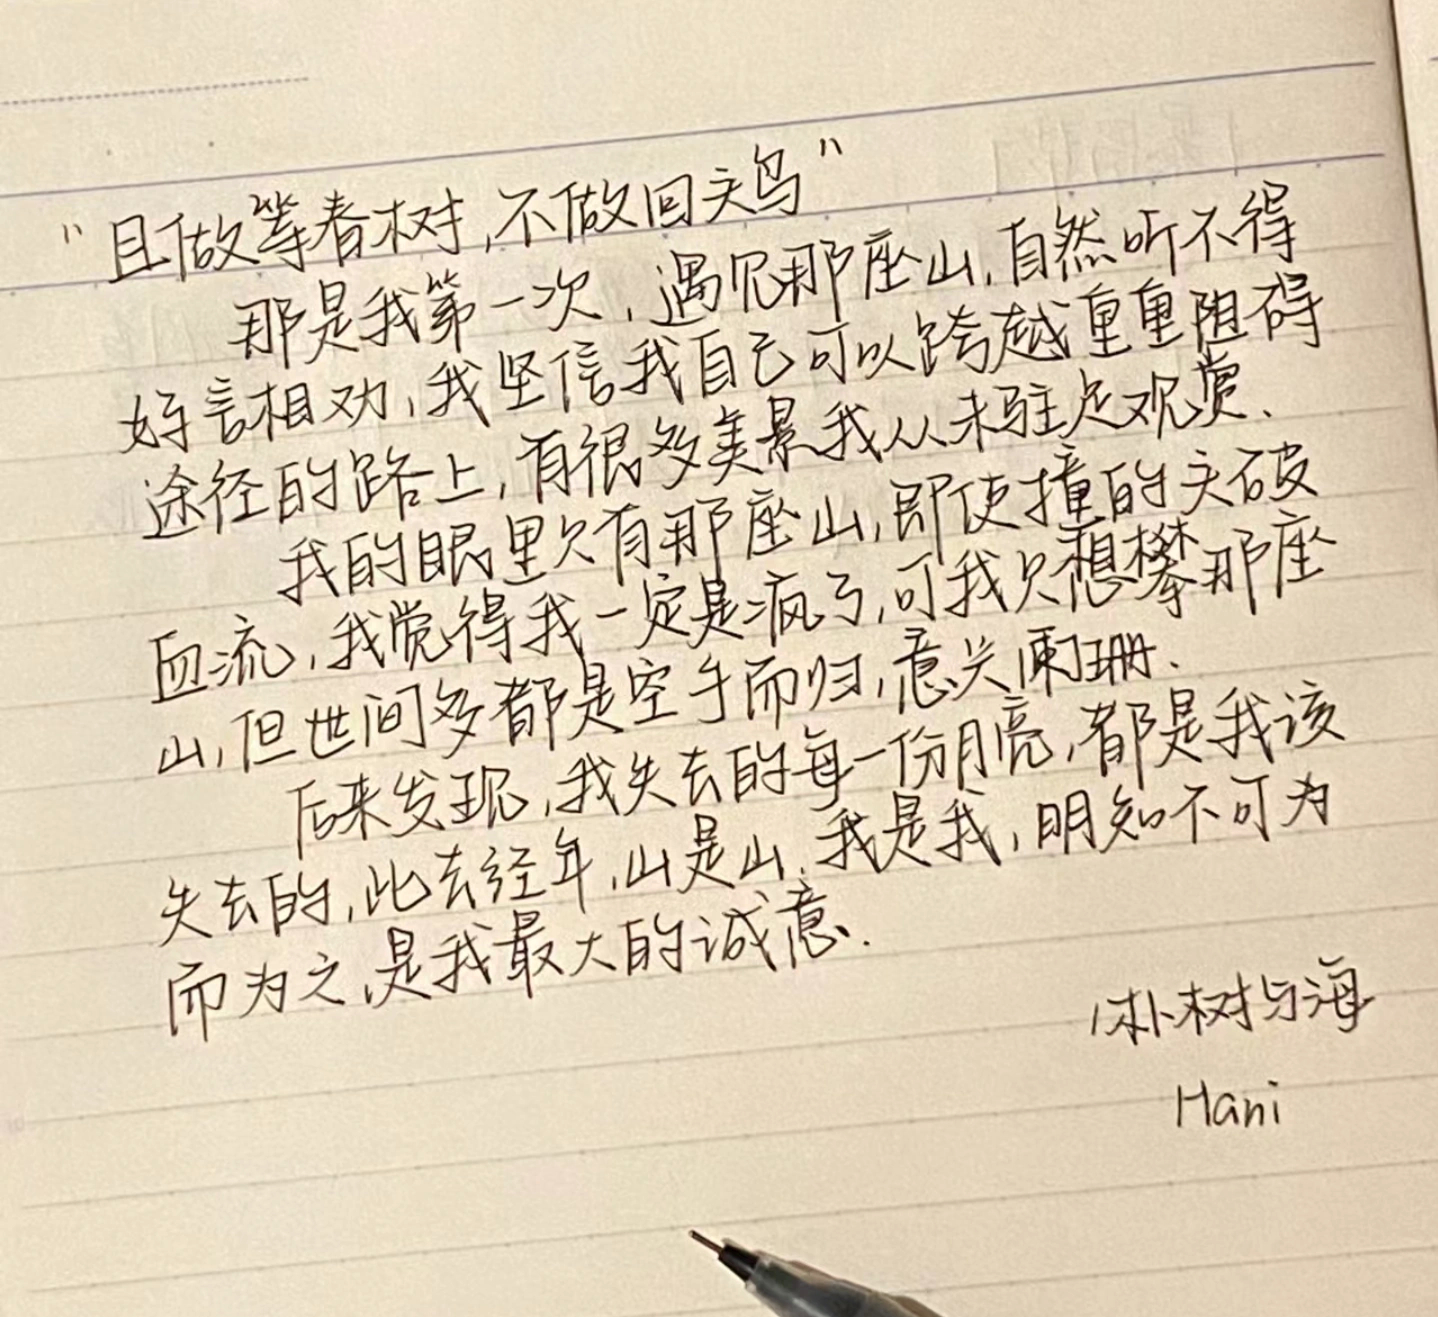 “且做等春树,不做回头鸟”
那是我第一次,遇见那座山,自然听不得
好言相劝,我坚信我自己可以跨越重重阻碍
途径的路上,有很多美景我从未驻足观赏.
我的眼里只有那座山,即使撞的头破
血流,我觉得我一定是疯了,可我只想攀那座
山,但世间多都是空手而归,意兴阑珊.
后来发现,我失去的每一份月亮,都是我该
失去的,此去经年,山是山.我是我,明知不可为
而为之,是我最大的诚意.
朴树与海
Hani